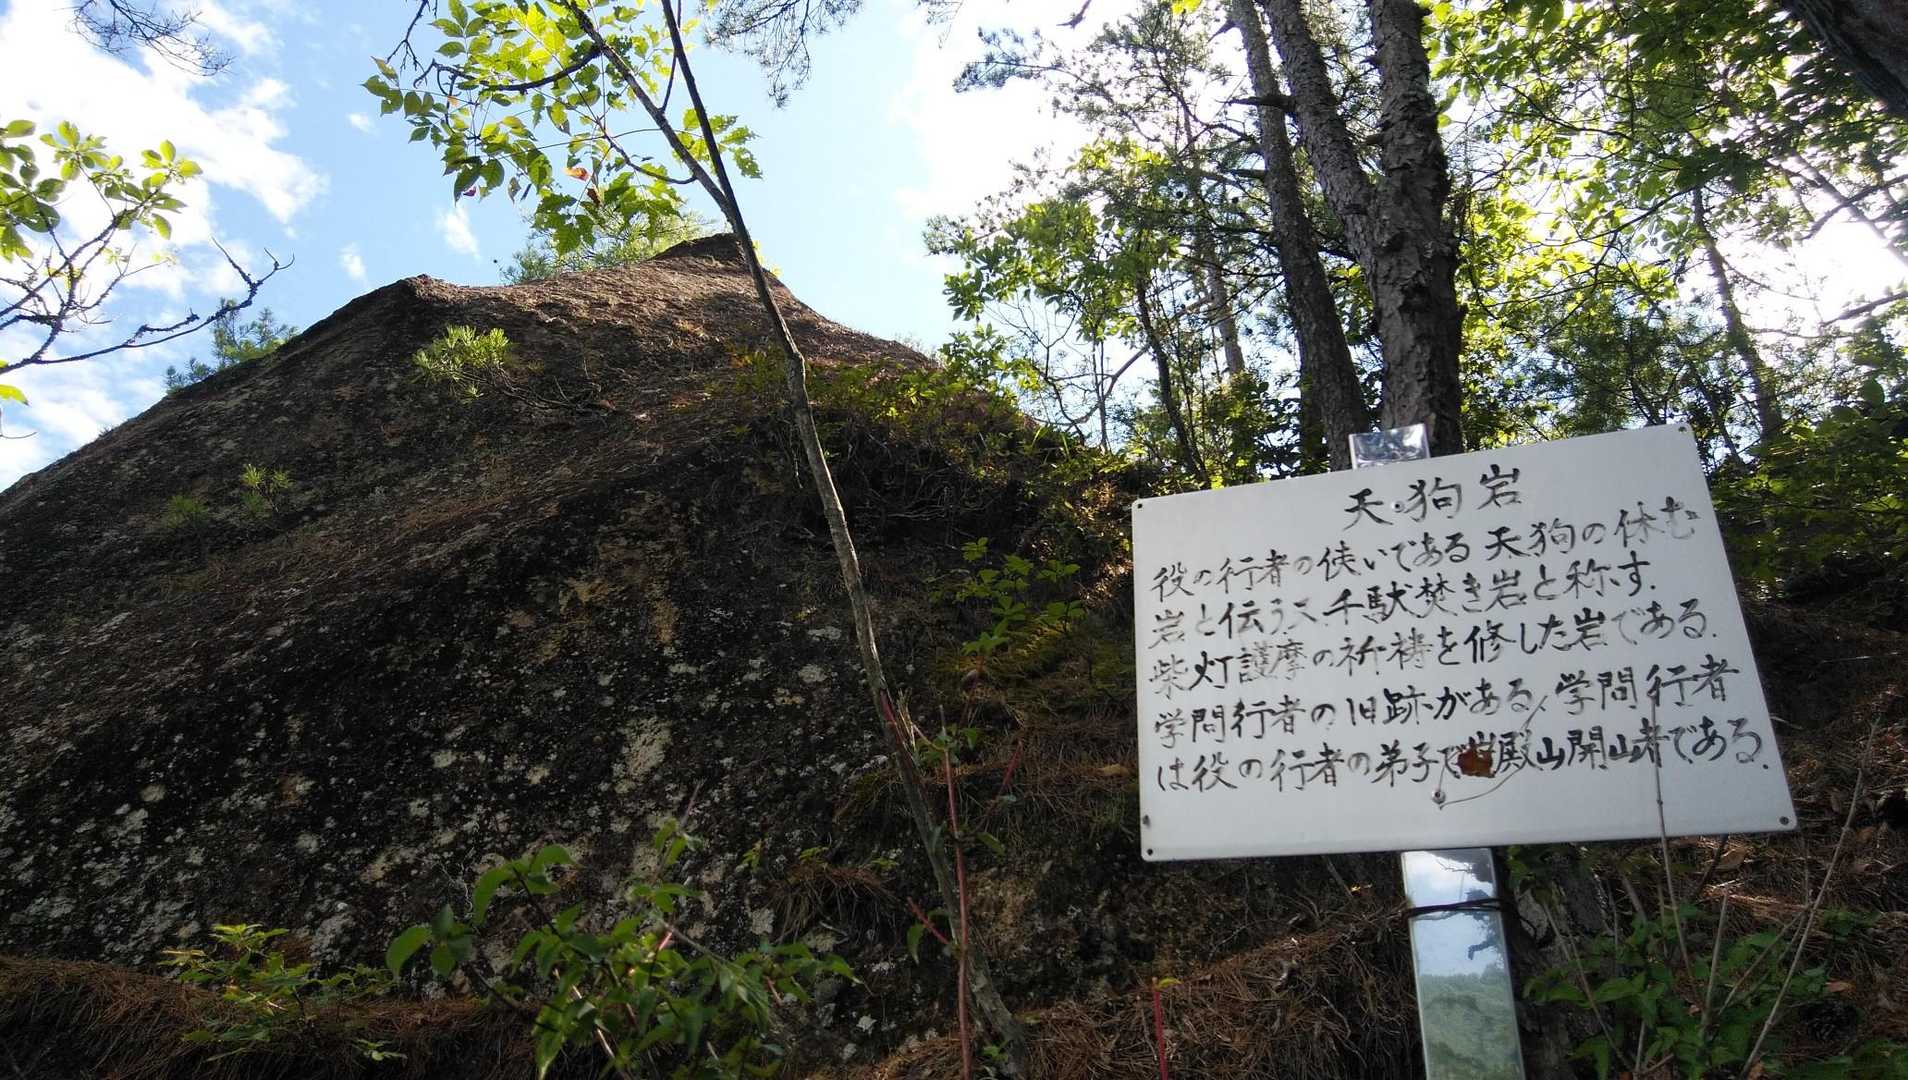 天狗岩
役の行者の使いである天狗の休む
岩と伝う又千駄焚き岩と称す.
柴灯護摩の祈祷を修した岩である.
学問行者の旧跡がある、学問行者
は役の行者の弟子で岩殿山開山者である.